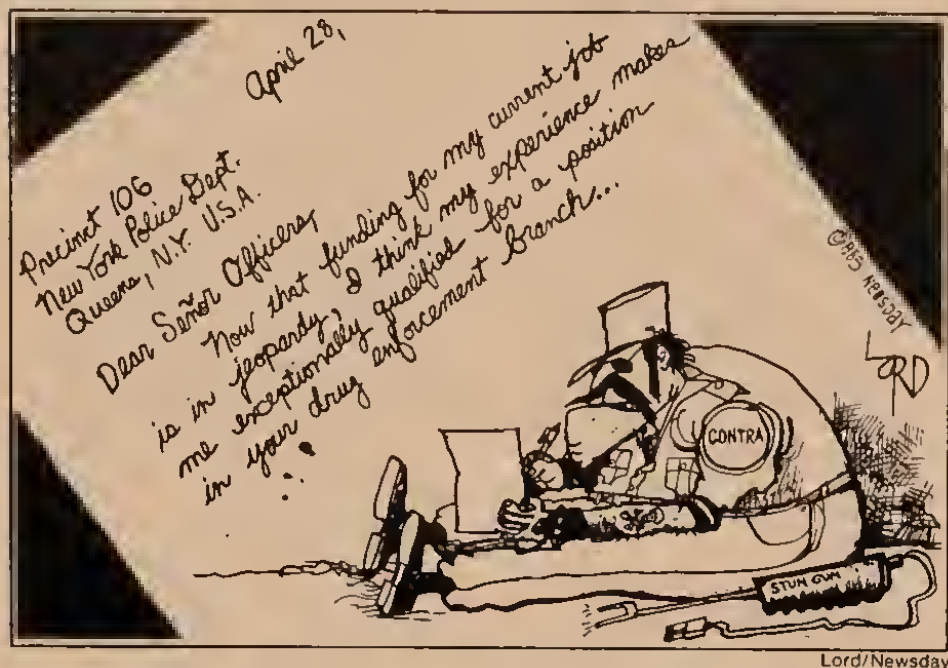 April 28,
Precinct 106
New York Police Dept.
Queens, N.Y. U.S.A.
Dear Señor Officers,
Now that funding for my current job
is in jeopardy, I think my experience makes
me exceptionally qualified for a position
in your drug enforcement branch...
©1985 NEWSDAY
LORD
CONTRA
STUN GUN
Lord/Newsday